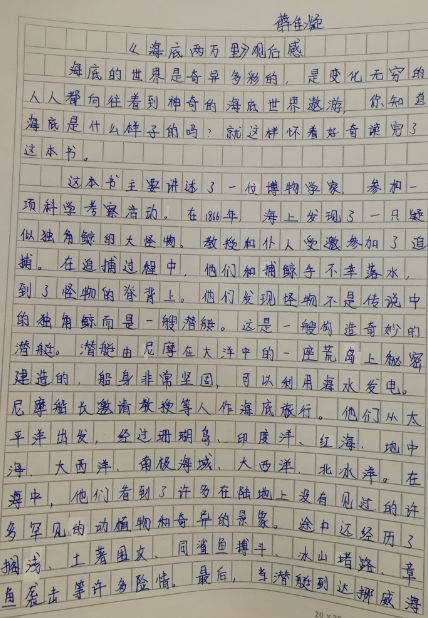 薛佳凝
《海底两万里》观后感
海底的世界是奇异多彩的，是变化无穷的
人人都向往看到神奇的海底世界遨游，你知道
海底是什么样子的吗？就这样怀着好奇读完了
这本书。
这本书主要讲述了一位博物学家 参加一
项科学考察活动。在1866年，海上发现了一只疑
似独角鲸的大怪物。教授和仆人受邀参加了追
捕。在追捕过程中，他们和捕鲸手不幸落水，
到了怪物的脊背上。他们发现怪物不是传说中
的独角鲸而是一艘潜艇。这是一艘构造奇妙的
潜艇。潜艇由尼摩在大洋中的一座荒岛上秘密
建造的，船身非常坚固，可以利用海水发电。
尼摩船长邀请教授等人作海底旅行。他们从太
平洋出发，经过珊瑚岛、印度洋、红海、地中
海、大西洋、南极海域、大西洋、北冰洋。在
海中，他们看到了许多在陆地上没有见过的许
多罕见的动植物和奇异的景象。途中还经历了
搁浅、土著围攻、同鲨鱼搏斗、冰山堵路、章
鱼袭击等许多险情。最后，当潜艇到达挪威海